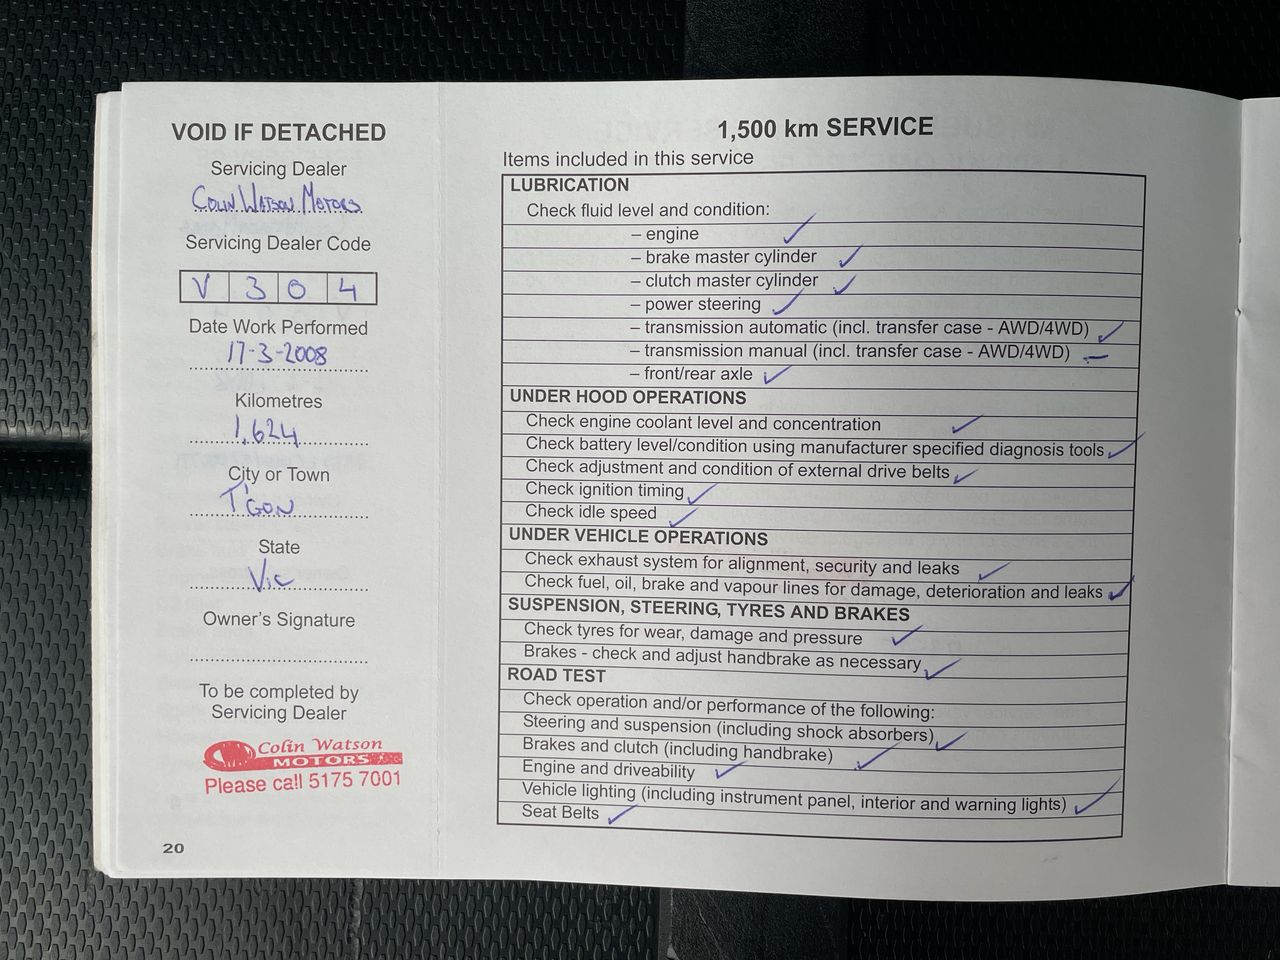 VOID IF DETACHED
Servicing Dealer
Colin Watson Motors
Servicing Dealer Code
V 3 0 4
Date Work Performed
17-3-2008
Kilometres
1,624
City or Town
T'GON
State
Vic
Owner's Signature
To be completed by
Servicing Dealer
Colin Watson
MOTORS
Please call 5175 7001
20
1,500 km SERVICE
Items included in this service
LUBRICATION
Check fluid level and condition:
– engine ✓
– brake master cylinder ✓
– clutch master cylinder ✓
– power steering ✓
– transmission automatic (incl. transfer case - AWD/4WD) ✓
– transmission manual (incl. transfer case - AWD/4WD) –
– front/rear axle ✓
UNDER HOOD OPERATIONS
Check engine coolant level and concentration ✓
Check battery level/condition using manufacturer specified diagnosis tools ✓
Check adjustment and condition of external drive belts ✓
Check ignition timing ✓
Check idle speed ✓
UNDER VEHICLE OPERATIONS
Check exhaust system for alignment, security and leaks ✓
Check fuel, oil, brake and vapour lines for damage, deterioration and leaks ✓
SUSPENSION, STEERING, TYRES AND BRAKES
Check tyres for wear, damage and pressure ✓
Brakes - check and adjust handbrake as necessary ✓
ROAD TEST
Check operation and/or performance of the following:
Steering and suspension (including shock absorbers) ✓
Brakes and clutch (including handbrake) ✓
Engine and driveability ✓
Vehicle lighting (including instrument panel, interior and warning lights) ✓
Seat Belts ✓